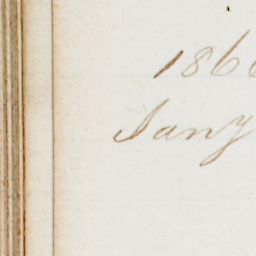 186
Jany